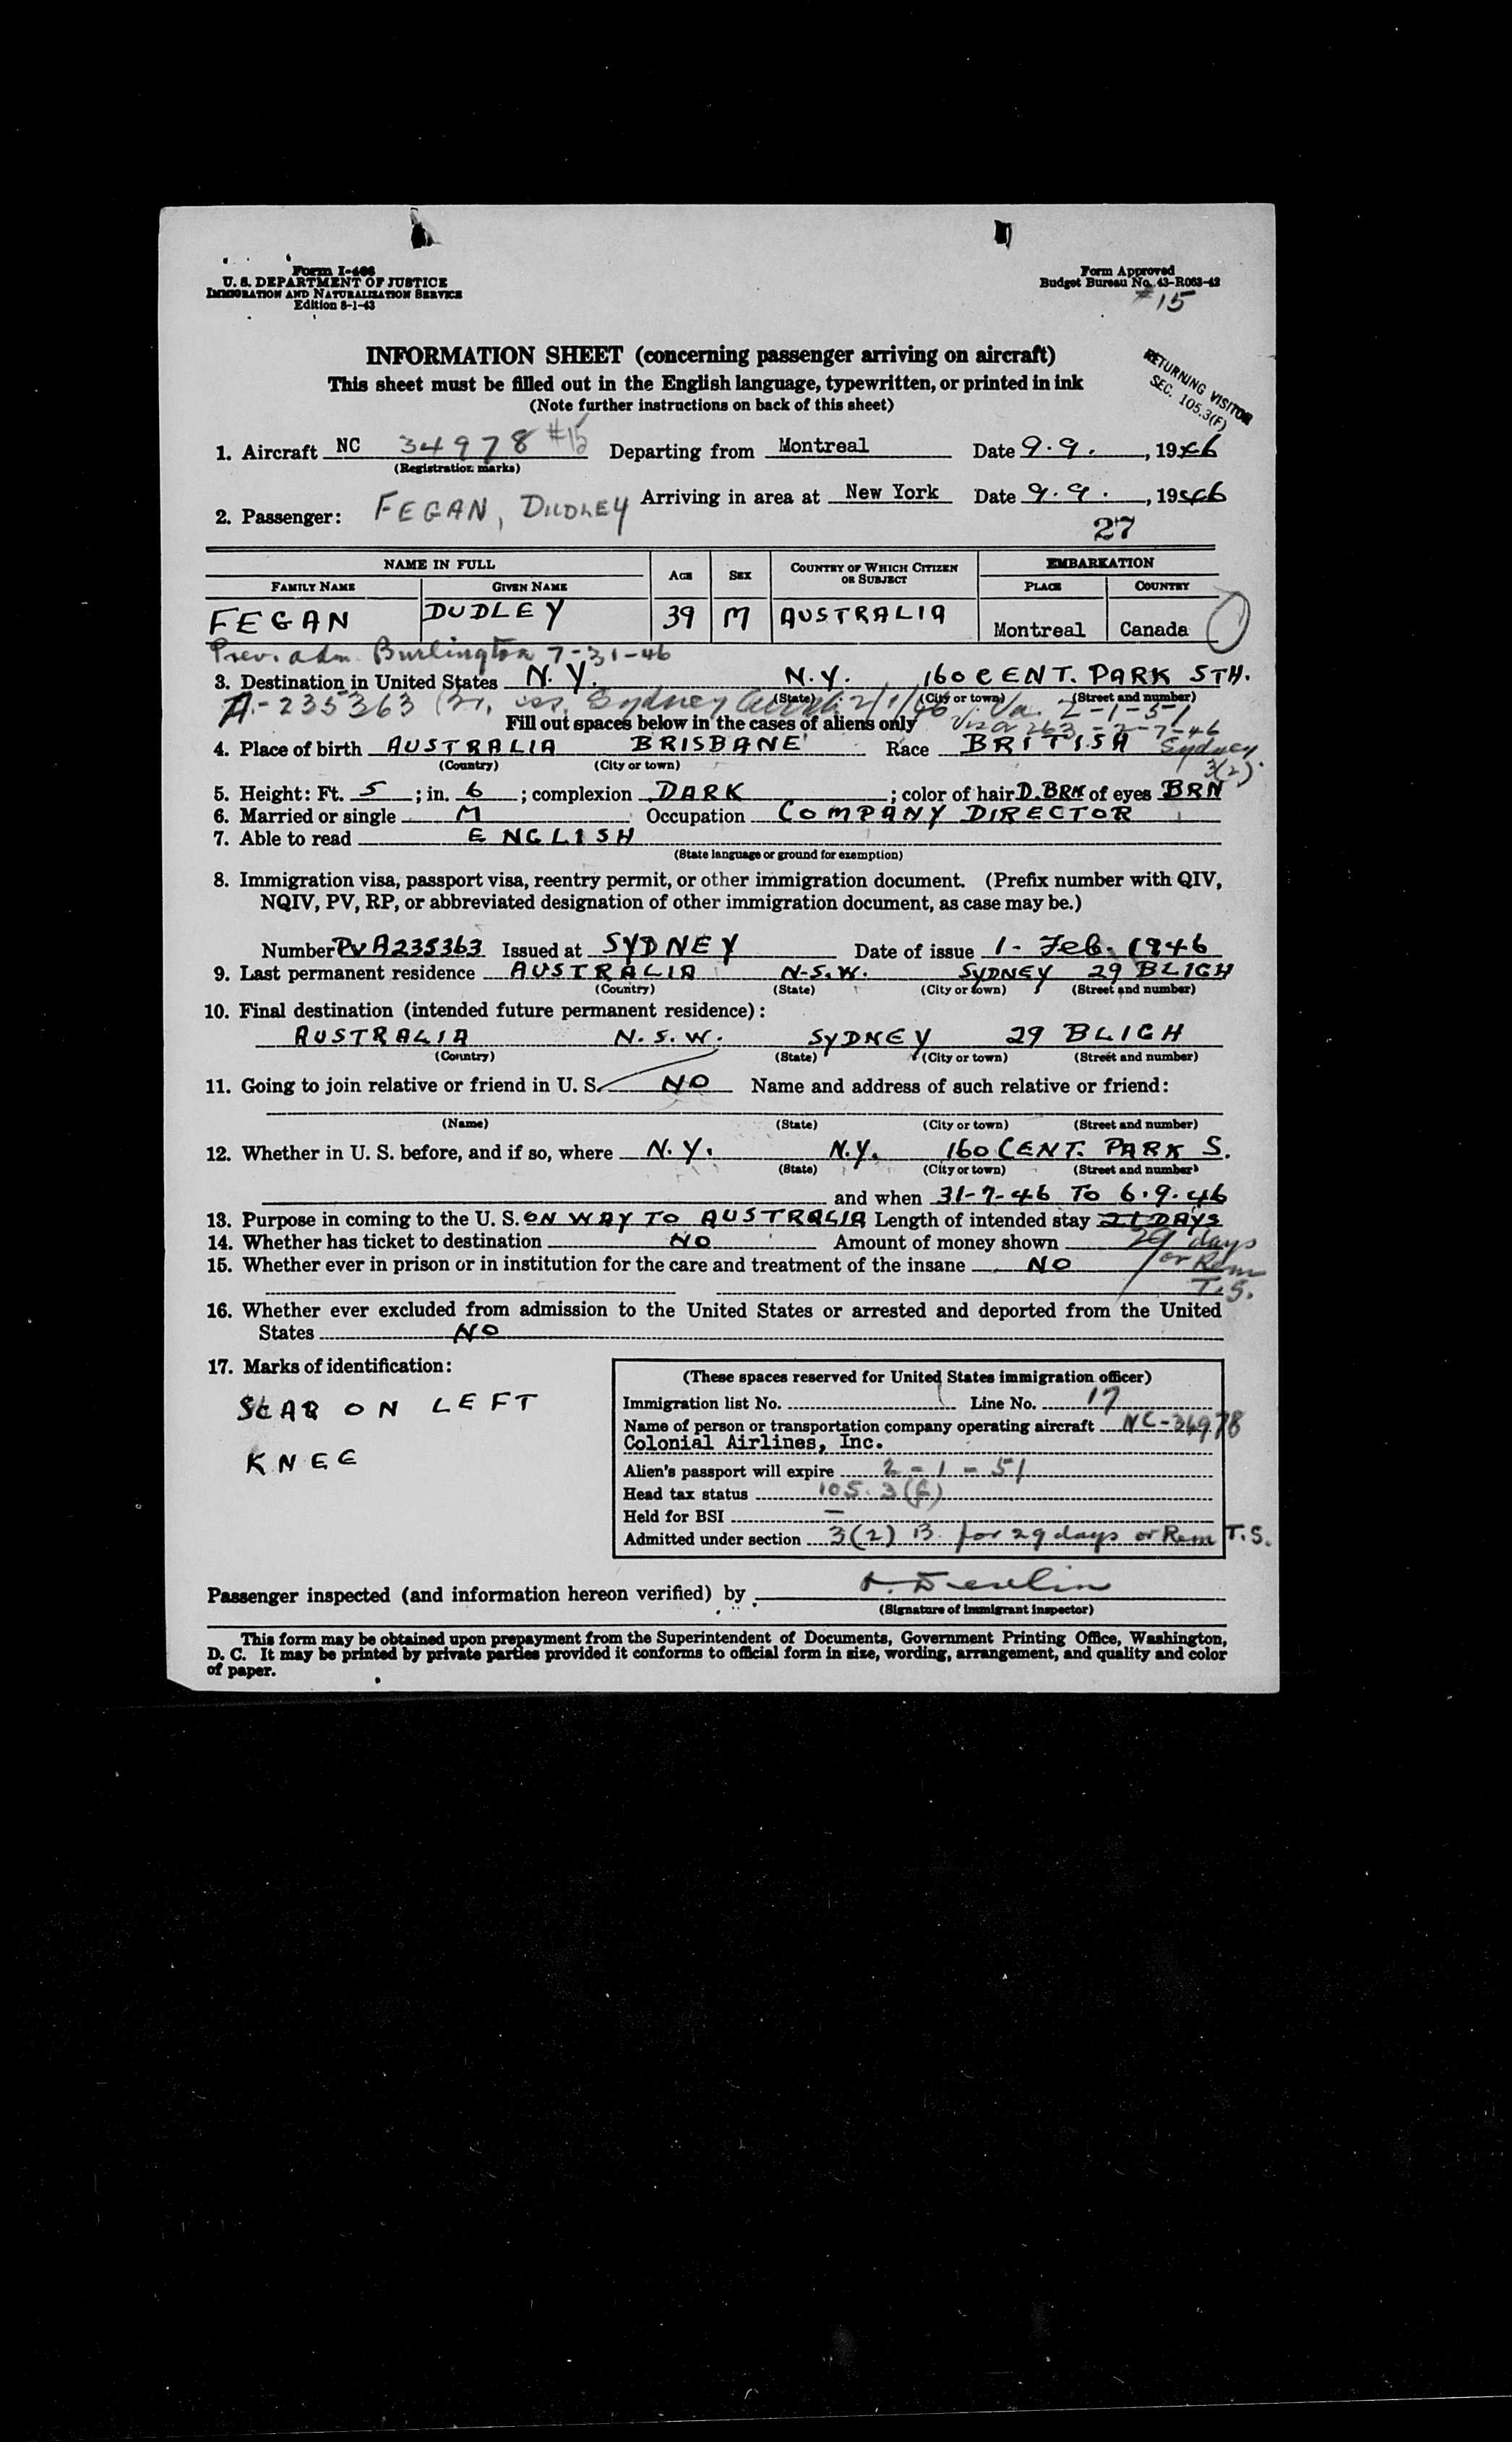 Form I-466
U. S. DEPARTMENT OF JUSTICE
IMMIGRATION AND NATURALIZATION SERVICE
Edition 8-1-43
Form Approved
Budget Bureau No. 43-R063-42
#15
INFORMATION SHEET (concerning passenger arriving on aircraft)
This sheet must be filled out in the English language, typewritten, or printed in ink
(Note further instructions on back of this sheet)
RETURNING VISITOR
SEC. 105.3(F)
1. Aircraft NC 34978 #15 Departing from Montreal Date 9.9. , 1946
(Registration marks)
Arriving in area at New York Date 9.9. , 1946
2. Passenger: FEGAN, DUDLEY
27
NAME IN FULL AGE SEX COUNTRY OF WHICH CITIZEN OR SUBJECT EMBARKATION
FAMILY NAME GIVEN NAME PLACE COUNTRY
FEGAN DUDLEY 39 M AUSTRALIA Montreal Canada
Prev. adm. Burlington 7-31-46
3. Destination in United States N.Y. N.Y. 160 CENT. PARK STH.
(State) (City or town) (Street and number)
A-235363 Sydney 2/1/46 2-1-51
Fill out spaces below in the cases of aliens only Visa 263 - 2-7-46
4. Place of birth AUSTRALIA BRISBANE Race BRITISH Sydney
(Country) (City or town) 3(2).
5. Height: Ft. 5 ; in. 6 ; complexion DARK ; color of hair D. BRN of eyes BRN
6. Married or single M Occupation COMPANY DIRECTOR
7. Able to read ENGLISH
(State language or ground for exemption)
8. Immigration visa, passport visa, reentry permit, or other immigration document. (Prefix number with QIV,
NQIV, PV, RP, or abbreviated designation of other immigration document, as case may be.)
Number PV A235363 Issued at SYDNEY Date of issue 1 - Feb. 1946
9. Last permanent residence AUSTRALIA N.S.W. SYDNEY 29 BLIGH
(Country) (State) (City or town) (Street and number)
10. Final destination (intended future permanent residence):
AUSTRALIA N.S.W. SYDNEY 29 BLIGH
(Country) (State) (City or town) (Street and number)
11. Going to join relative or friend in U. S. NO Name and address of such relative or friend:
(Name) (State) (City or town) (Street and number)
12. Whether in U. S. before, and if so, where N.Y. N.Y. 160 CENT. PARK S.
(State) (City or town) (Street and number)
and when 31-7-46 TO 6.9.46
13. Purpose in coming to the U. S. ON WAY TO AUSTRALIA Length of intended stay 21 DAYS
14. Whether has ticket to destination NO Amount of money shown 29 days
15. Whether ever in prison or in institution for the care and treatment of the insane NO or Rem
T.S.
16. Whether ever excluded from admission to the United States or arrested and deported from the United
States NO
17. Marks of identification:
SCAR ON LEFT
KNEE
(These spaces reserved for United States immigration officer)
Immigration list No. Line No. 17
Name of person or transportation company operating aircraft NC-34978
Colonial Airlines, Inc.
Alien's passport will expire 2-1-51
Head tax status 105.3(f)
Held for BSI —
Admitted under section 3(2) B. for 29 days or Rem T.S.
Passenger inspected (and information hereon verified) by Devlin
(Signature of immigrant inspector)
This form may be obtained upon prepayment from the Superintendent of Documents, Government Printing Office, Washington,
D. C. It may be printed by private parties provided it conforms to official form in size, wording, arrangement, and quality and color
of paper.